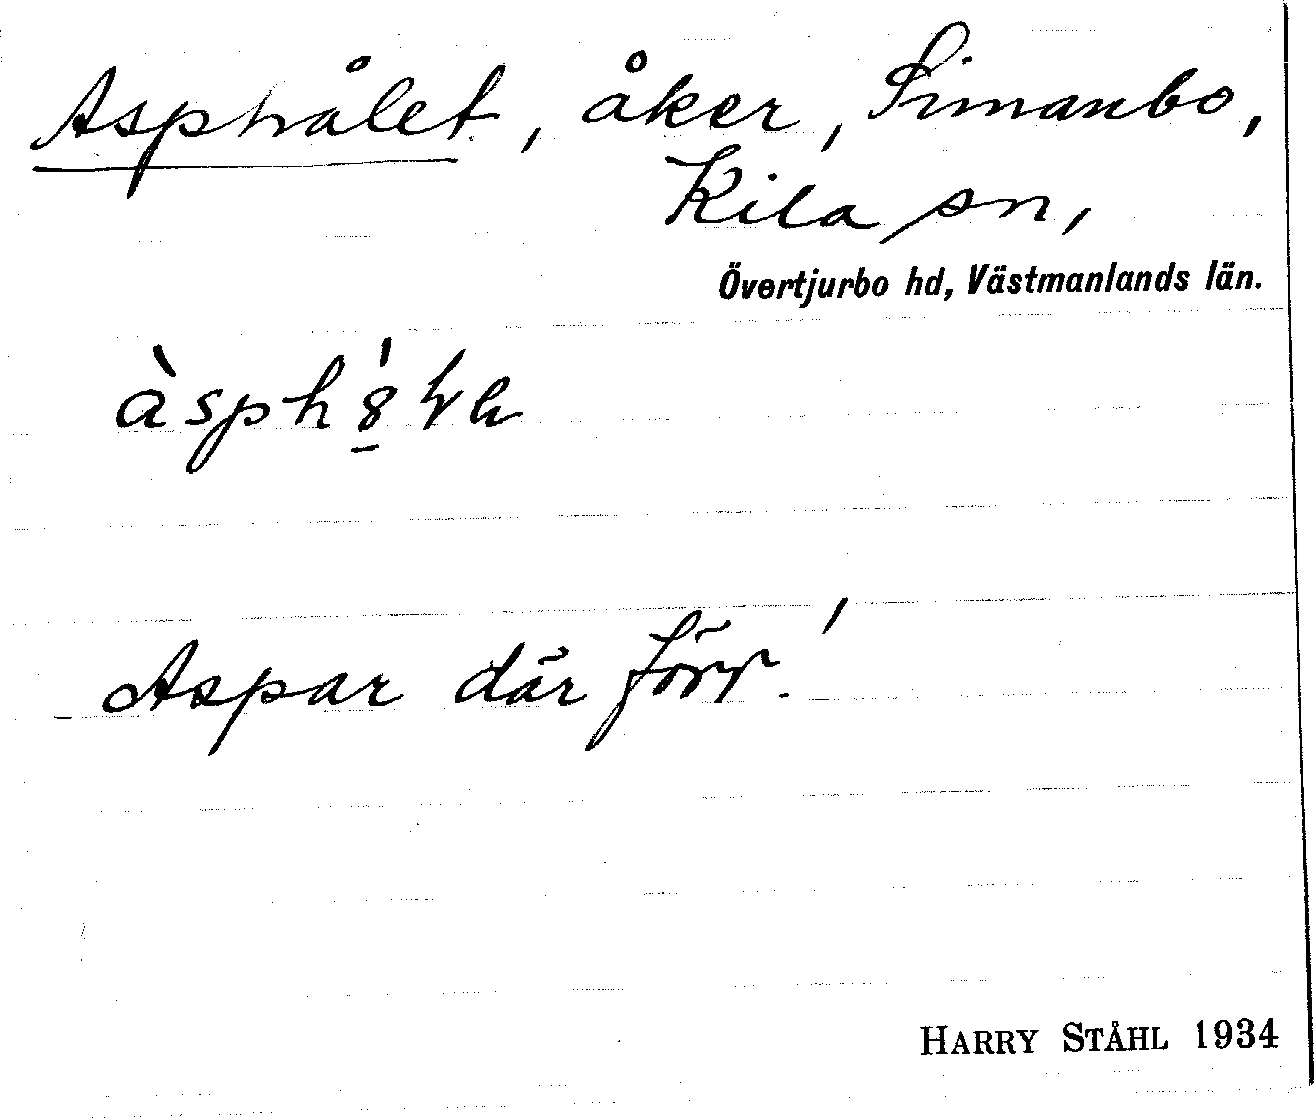 Asphålet, åker, Simanbo,
Kila sn,
Övertjurbo hd, Västmanlands län.
Aspar där förr.
HARRY STÅHL 1934